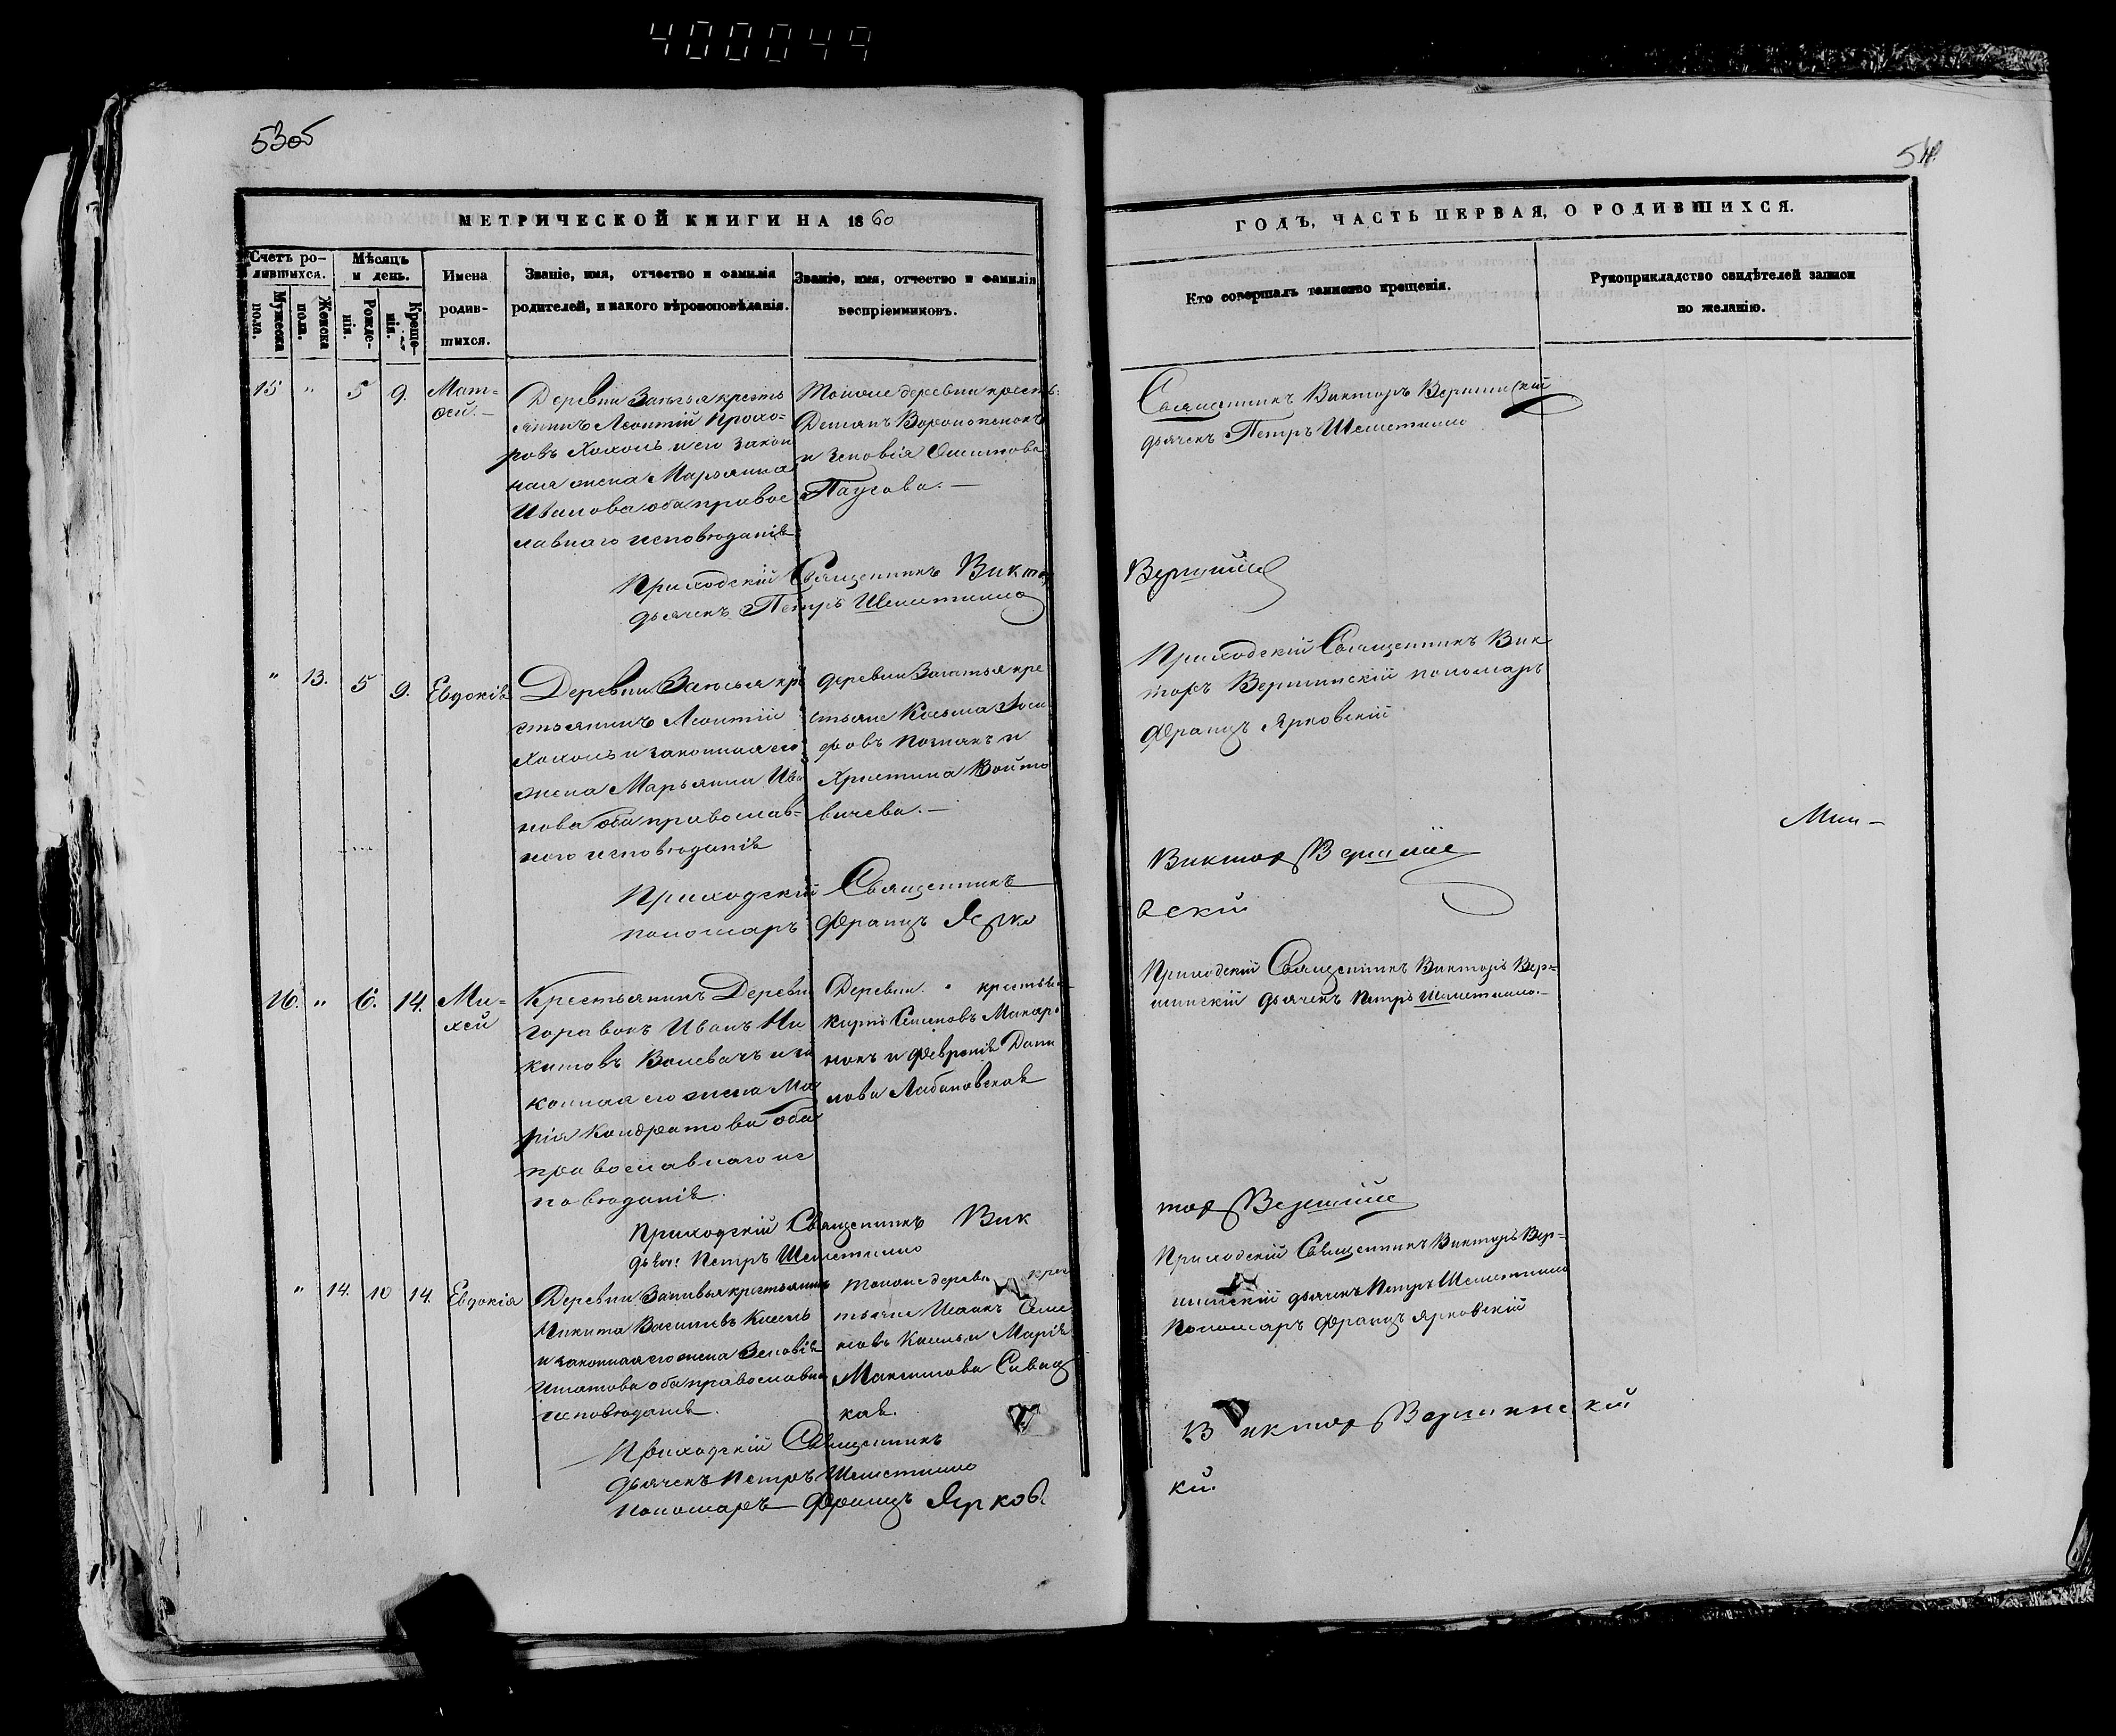 400049
53об
54
МЕТРИЧЕСКОЙ КНИГИ НА 1860
ГОДЪ, ЧАСТЬ ПЕРВАЯ, О РОДИВШИХСЯ.
Счетъ ро-
дившихся.
Мужеска пола.
Женска пола.
Мѣсяцъ
и день.
Рожде-
нія.
Креще-
нія.
Имена
родив-
шихся.
Званіе, имя, отчество и фамилія
родителей, и какого вѣроисповѣданія.
Званіе, имя, отчество и фамилія
воспріемниковъ.
Кто совершалъ таинство крещенія.
Рукоприкладство свидѣтелей записи
по желанію.
15 " 5 9. Мат-
ѳей.-
Деревни крестъ
янинъ Леонтій Прохо-
ровъ Хохолъ и его закон
ная жена Марьянна
Иванова оба правос
лавнаго исповѣданія
Тойже деревни крестъ:
Демянъ
и Зеновія
Священникъ Викторъ Вершинскій
дьячекъ Петръ Шеметилло
Приходскій Священникъ Виктор
Вершинс
дьячекъ Петръ Шеметилло
" 13. 5 9. Евдокія
Деревни кре
стьянинъ Леонтій
Хохолъ и законная его
жена Марьянна Ива
нова оба православ-
ного исповѣданія
деревни кре
стьяне Косьма Іоси
фовъ Познякъ и
Христина Войто
вичева.-
Приходскій Священникъ Вик
торъ Вершинскій пономарь
Францъ Ярковскій
Мин-
Приходскій Священникъ
Виктор Вершинс
пономарь Францъ Ярко
вскій
16. " 6. 14. Ми-
хей
Крестьянинъ Деревни
Иванъ Ни
китовъ и за
конная его жена Ма
рія Кондратова оба
православнаго ис
повѣданія.
Деревни. " крестьян
и Февронія Дани
лова
Приходскій Священникъ Викторъ Вер-
шинскій дьячекъ Петръ Шеметилло.-
Приходскій Священникъ Вик
тор Вершинс
дьяч: Петръ Шеметилло
" 14. 10 14. Евдокія
Деревни крестьянинъ
Никита Васильевъ
и законная его жена Зеновія
Игнатова оба православнаго
исповѣданія.
Тойже деревни крес
тьяне Семе
новъ и Марія
Максимова Сивац
кая.
Приходскій Священникъ Викторъ Вер-
шинскій дьячекъ Петръ Шеметилло
Пономарь Францъ Ярковскій
Приходскій Священникъ
Виктор Вершинскій
дьячекъ Петръ Шеметилло
пономарь Францъ Ярковс
кій